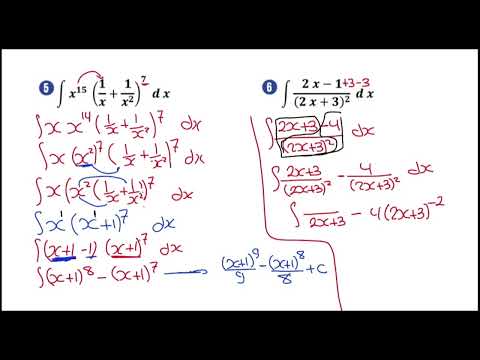 5 ∫ x¹⁵ (1/x + 1/x²)⁷ dx
∫ x x¹⁴ (1/x + 1/x²)⁷ dx
∫ x (x²)⁷ (1/x + 1/x²)⁷ dx
∫ x (x² (1/x + 1/x²))⁷ dx
∫ x¹ (x¹ + 1)⁷ dx
∫ (x+1 -1) (x+1)⁷ dx
∫ (x+1)⁸ - (x+1)⁷ (x+1)⁹/9 - (x+1)⁸/8 + c
6 ∫ (2x - 1 +3 -3)/(2x + 3)² dx
∫ (2x+3 -4)/(2x+3)² dx
∫ (2x+3)/(2x+3)² - 4/(2x+3)² dx
∫ /(2x+3) - 4(2x+3)⁻²